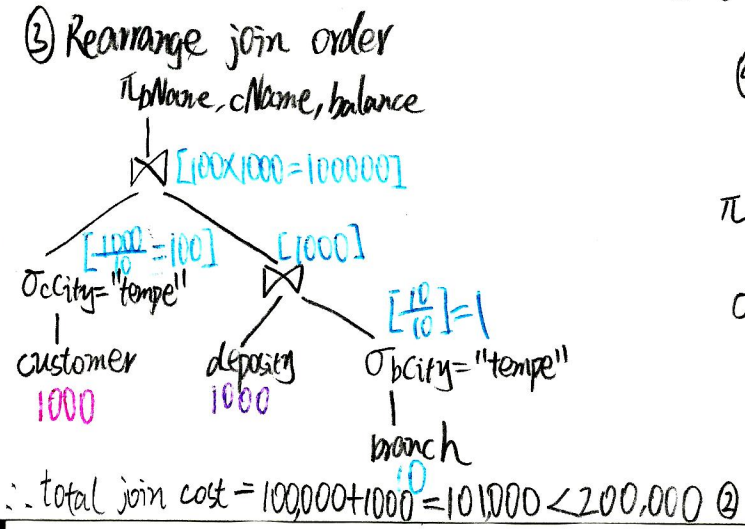 ③ Rearrange join order
πbName, cName, balance
⋈ [100×1000=100000]
[1000/10=100] [1000]
σcCity="tempe" ⋈
[10/10]=1
customer deposity σbCity="tempe"
1000 1000
branch
10
∴ total join cost = 100,000+1000 = 101,000 < 200,000 ②
π